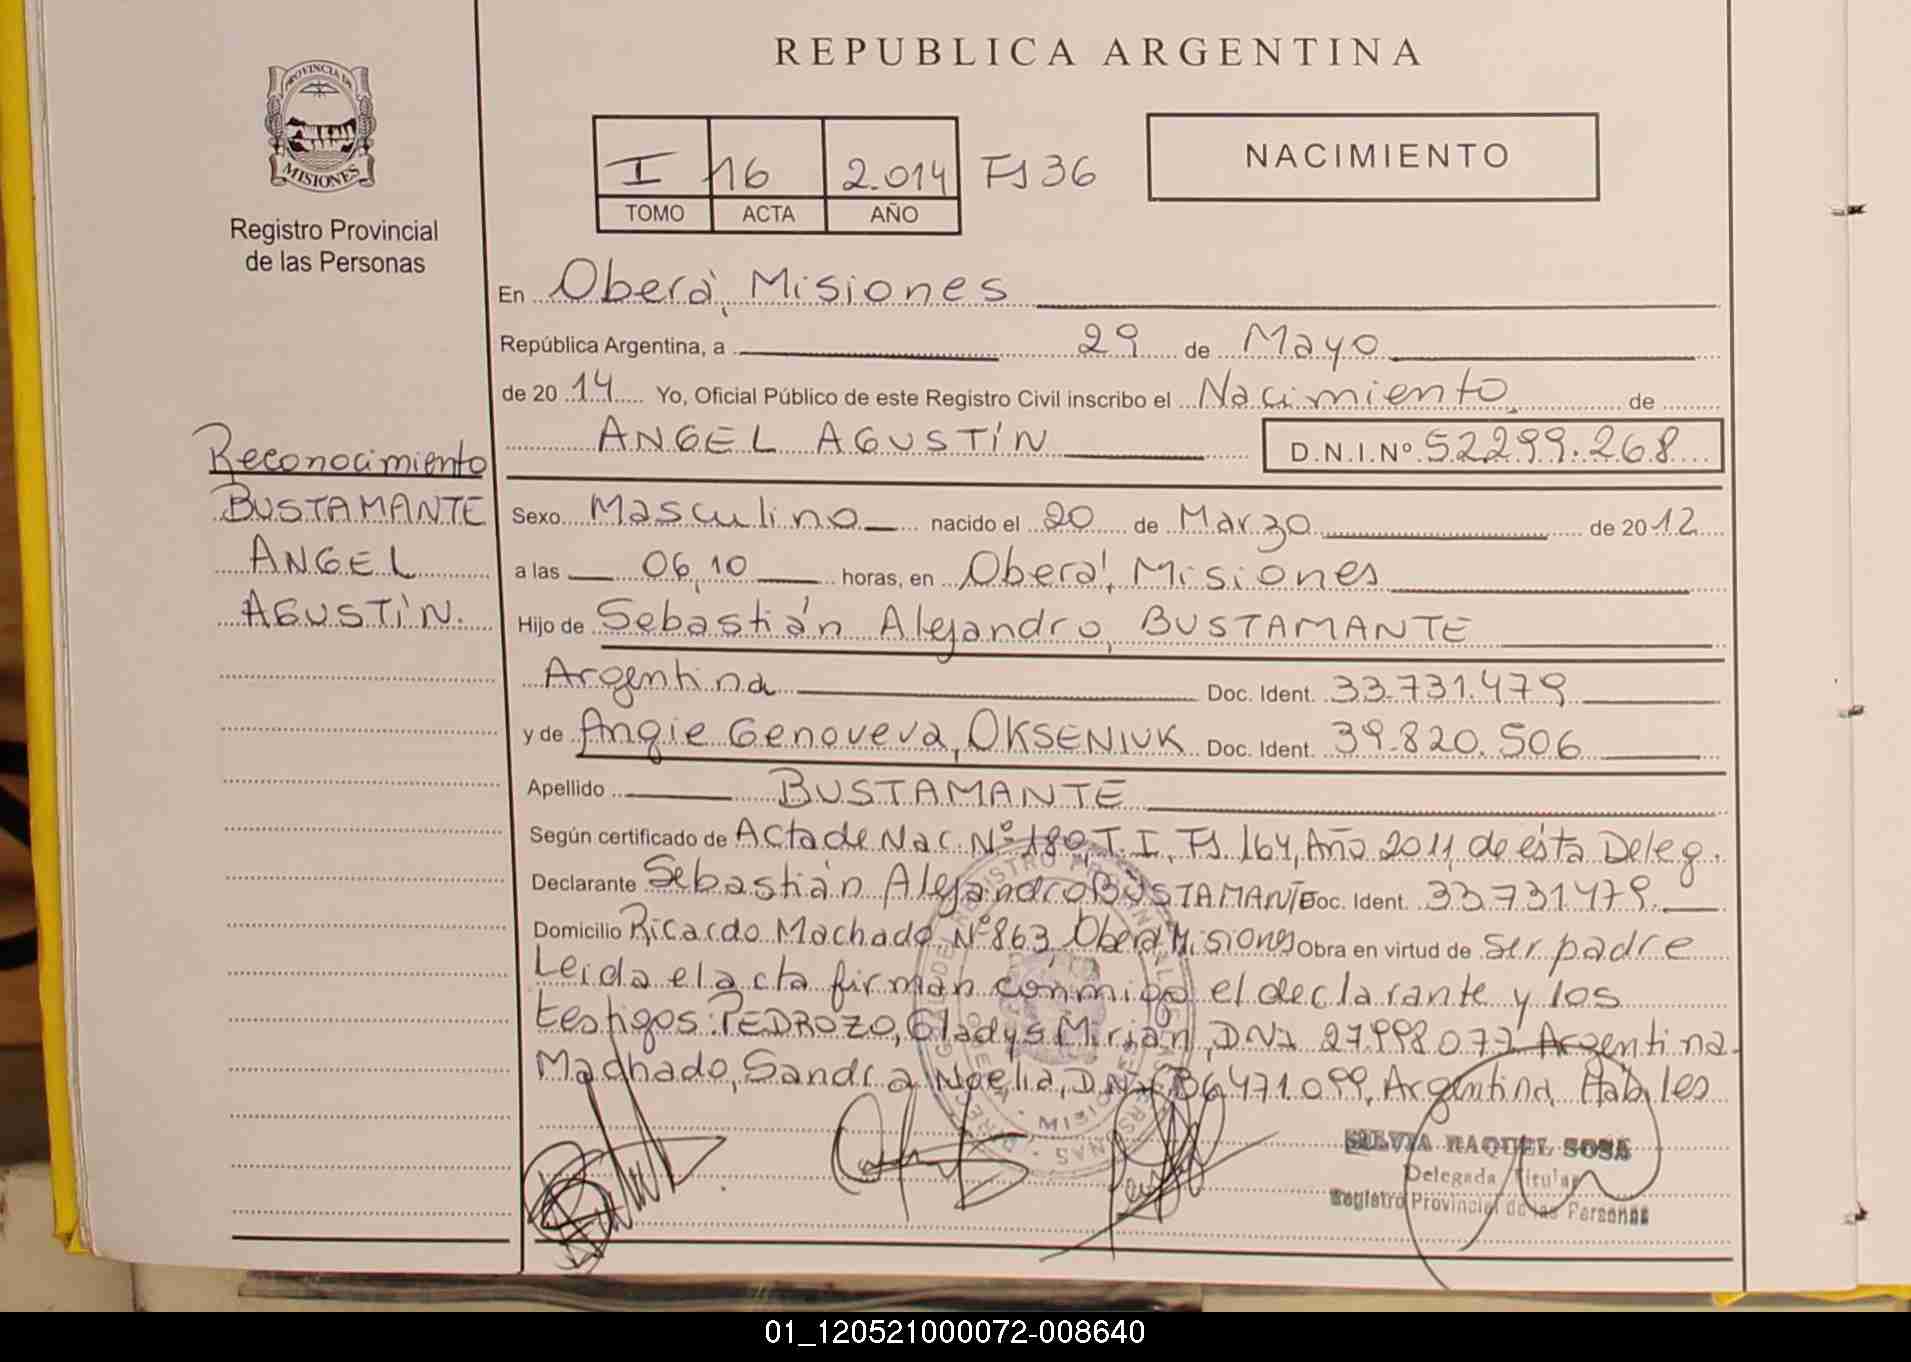 REPUBLICA ARGENTINA
PROVINCIA DE
MISIONES
Registro Provincial
de las Personas
I 16 2.014 FJ 36
TOMO ACTA AÑO
NACIMIENTO
En Oberá, Misiones
República Argentina, a 29 de Mayo
de 20 14 Yo, Oficial Público de este Registro Civil inscribo el Nacimiento de
ANGEL AGUSTÍN D.N.I.Nº 52299.268
Reconocimiento
BUSTAMANTE
ANGEL
AGUSTÍN.
Sexo Masculino nacido el 20 de Marzo de 2012
a las 06,10 horas, en Oberá, Misiones
Hijo de Sebastián Alejandro, BUSTAMANTE
Argentina Doc. Ident. 33.731.479
y de Angie Genoveva, OKSENIUK Doc. Ident. 39.820.506
Apellido BUSTAMANTE
Según certificado de Acta de Nac. Nº 180, T. I, FJ 164, Año 2011, de ésta Deleg.
Declarante Sebastián Alejandro BUSTAMANTE Doc. Ident. 33.731479.
Domicilio Ricardo Machado Nº 863, Oberá Misiones Obra en virtud de ser padre
Leída el acta firman conmigo el declarante y los
testigos: PEDROZO, Gladys Mirian, DNI 27.998077 Argentina
Machado, Sandra Noelia, DNI 36471.099, Argentina, Habiles
SILVIA RAQUEL SOSA
Delegada Titular
Registro Provincial de las Personas
01_120521000072-008640